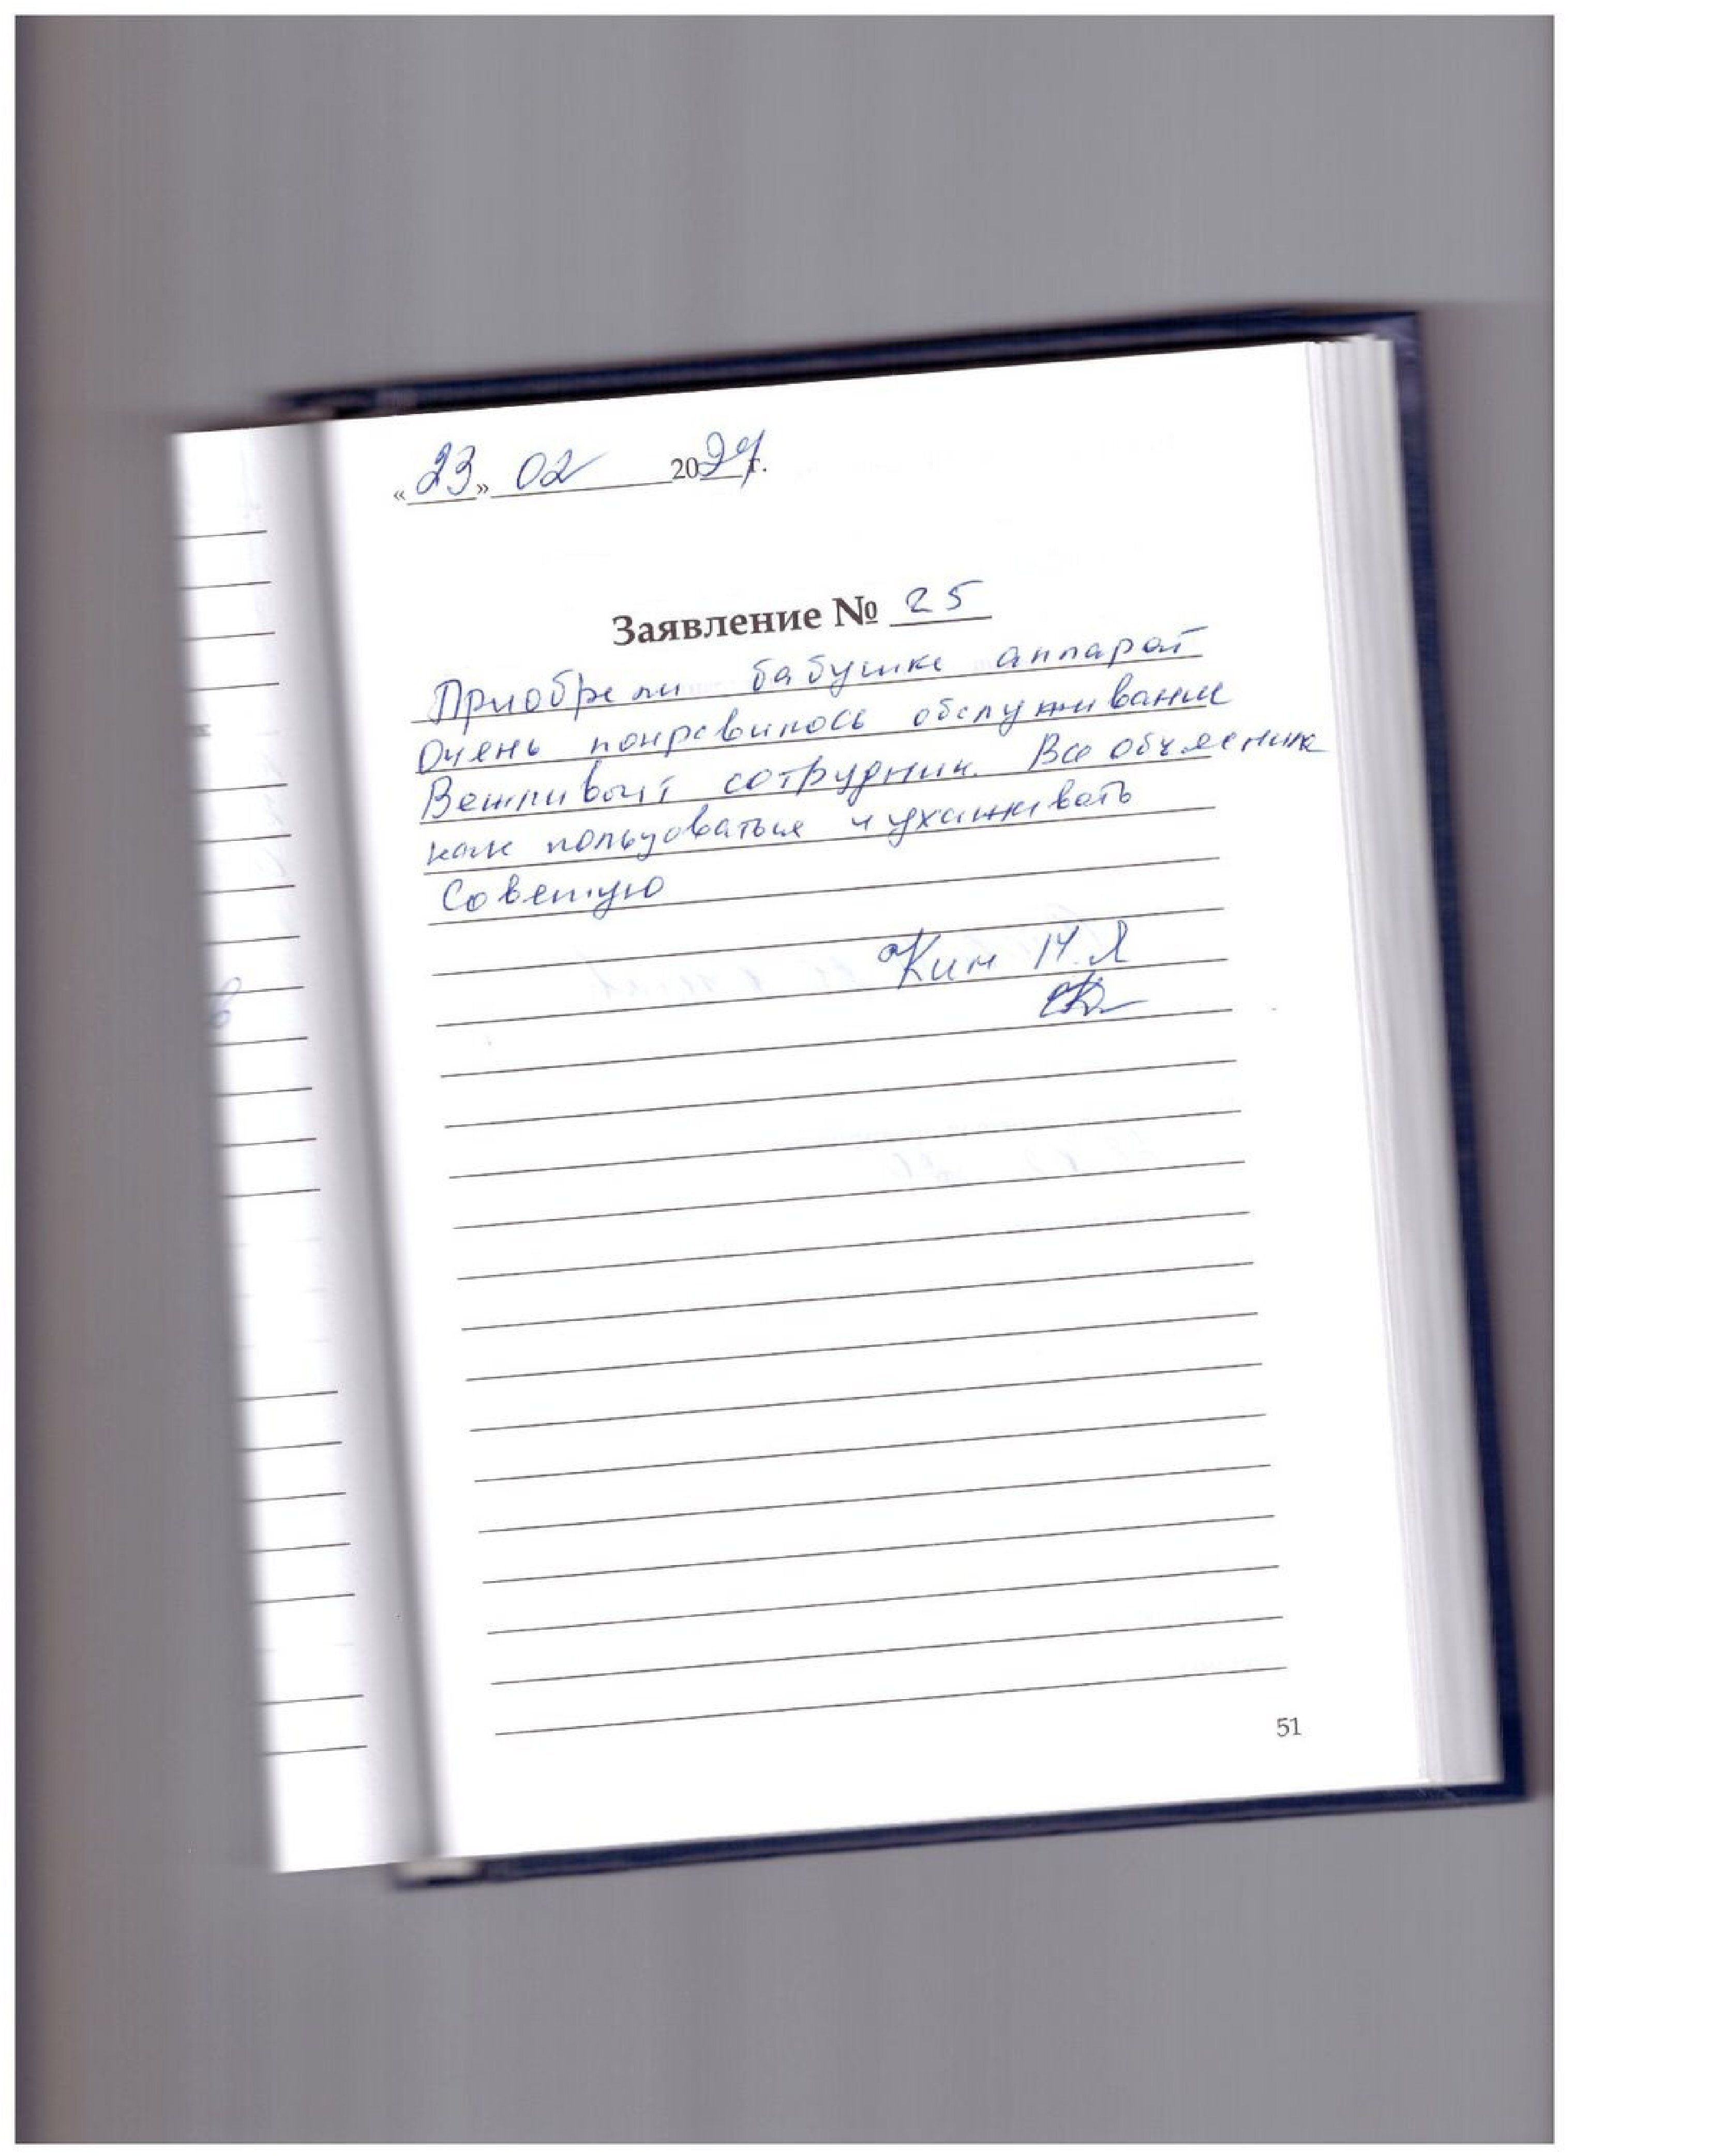 «23» 02 2024 г.
Заявление № 25
Приобрели бабушке аппарат
Очень понравилось обслуживание
Вежливый сотрудник. Все объяснил
как пользоваться и ухаживать
Советую
Ким Н.Я
51